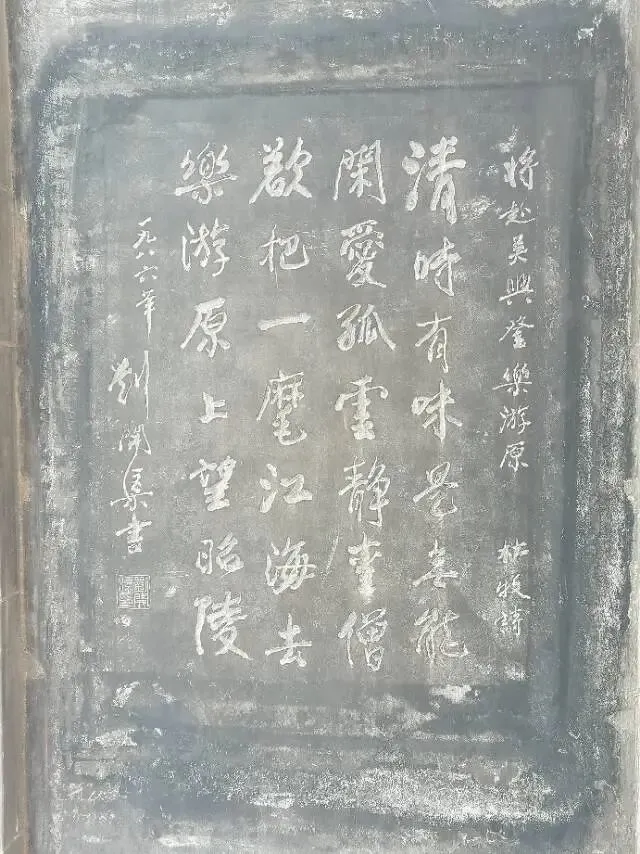 將赴吳興登樂游原 杜牧詩
清時有味是無能
閑愛孤雲靜愛僧
欲把一麾江海去
樂游原上望昭陵
一九八六年 劉開渠書